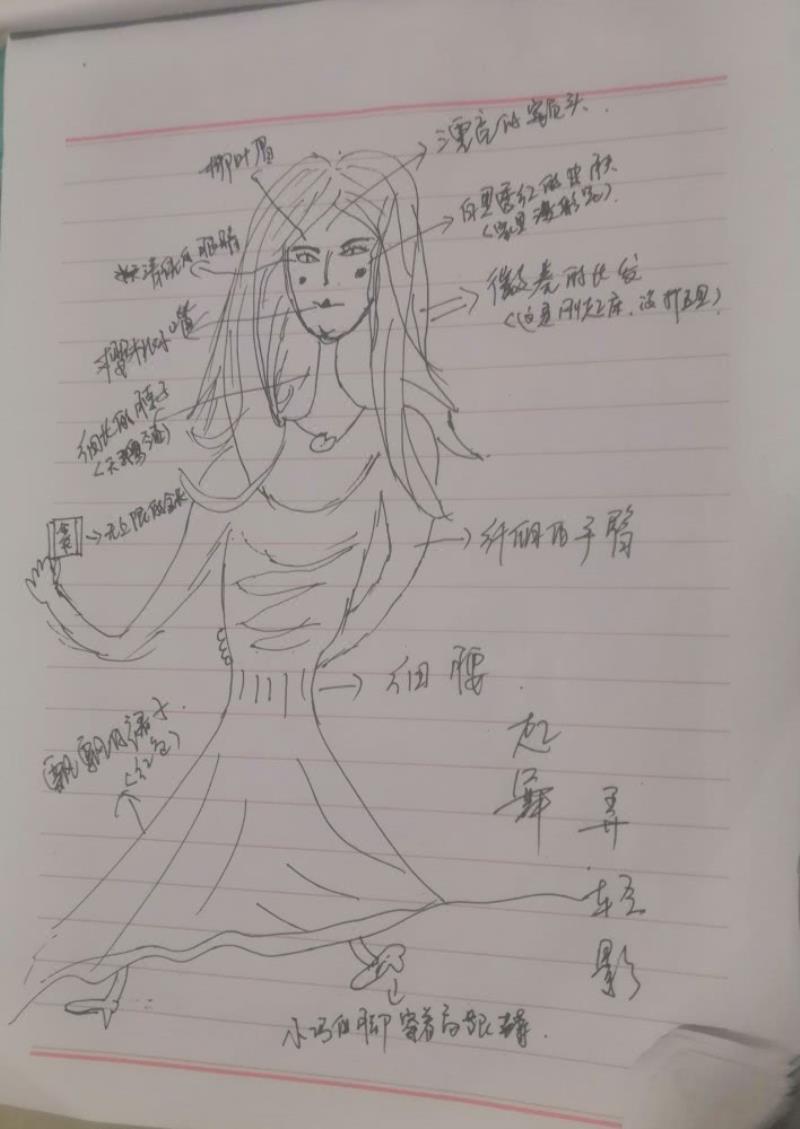 漂亮的额头
柳叶眉
白里透红的皮肤
清纯的眼睛
微卷的长发
(这是刚起床,没打理)
樱桃小嘴
细长的脖子
(天鹅颈)
金卡
→无上限的金卡
→纤细的手臂
→细腰
飘飘的裙子
(红色)
起舞
弄轻影
小巧的脚穿着高跟鞋